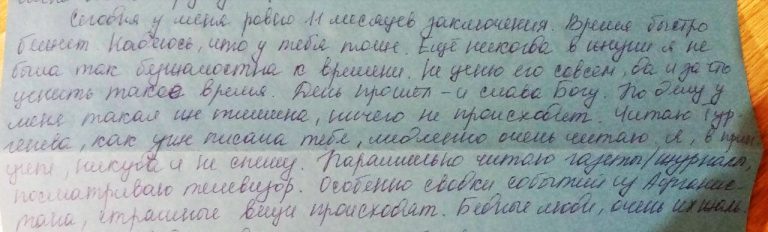 Сегодня у меня ровно 11 месяцев заключения. Время быстро
бежит. Надеюсь, что у тебя тоже. Ещё никогда в жизни я не
была так безжалостна к времени. Не ценю его совсем, да и за что
ценить такое время. День прошёл - и слава Богу. По делу у
меня такая же тишина, ничего не происходит. Читаю Тур-
генева, как уже писала тебе, медленно очень читаю, я, в прин-
ципе, никуда и не спешу. Параллельно читаю газеты/журналы,
посматриваю телевизор. Особенно сводки событий из Афганис-
тана, страшные вещи происходят. Бедные люди, очень их жаль.